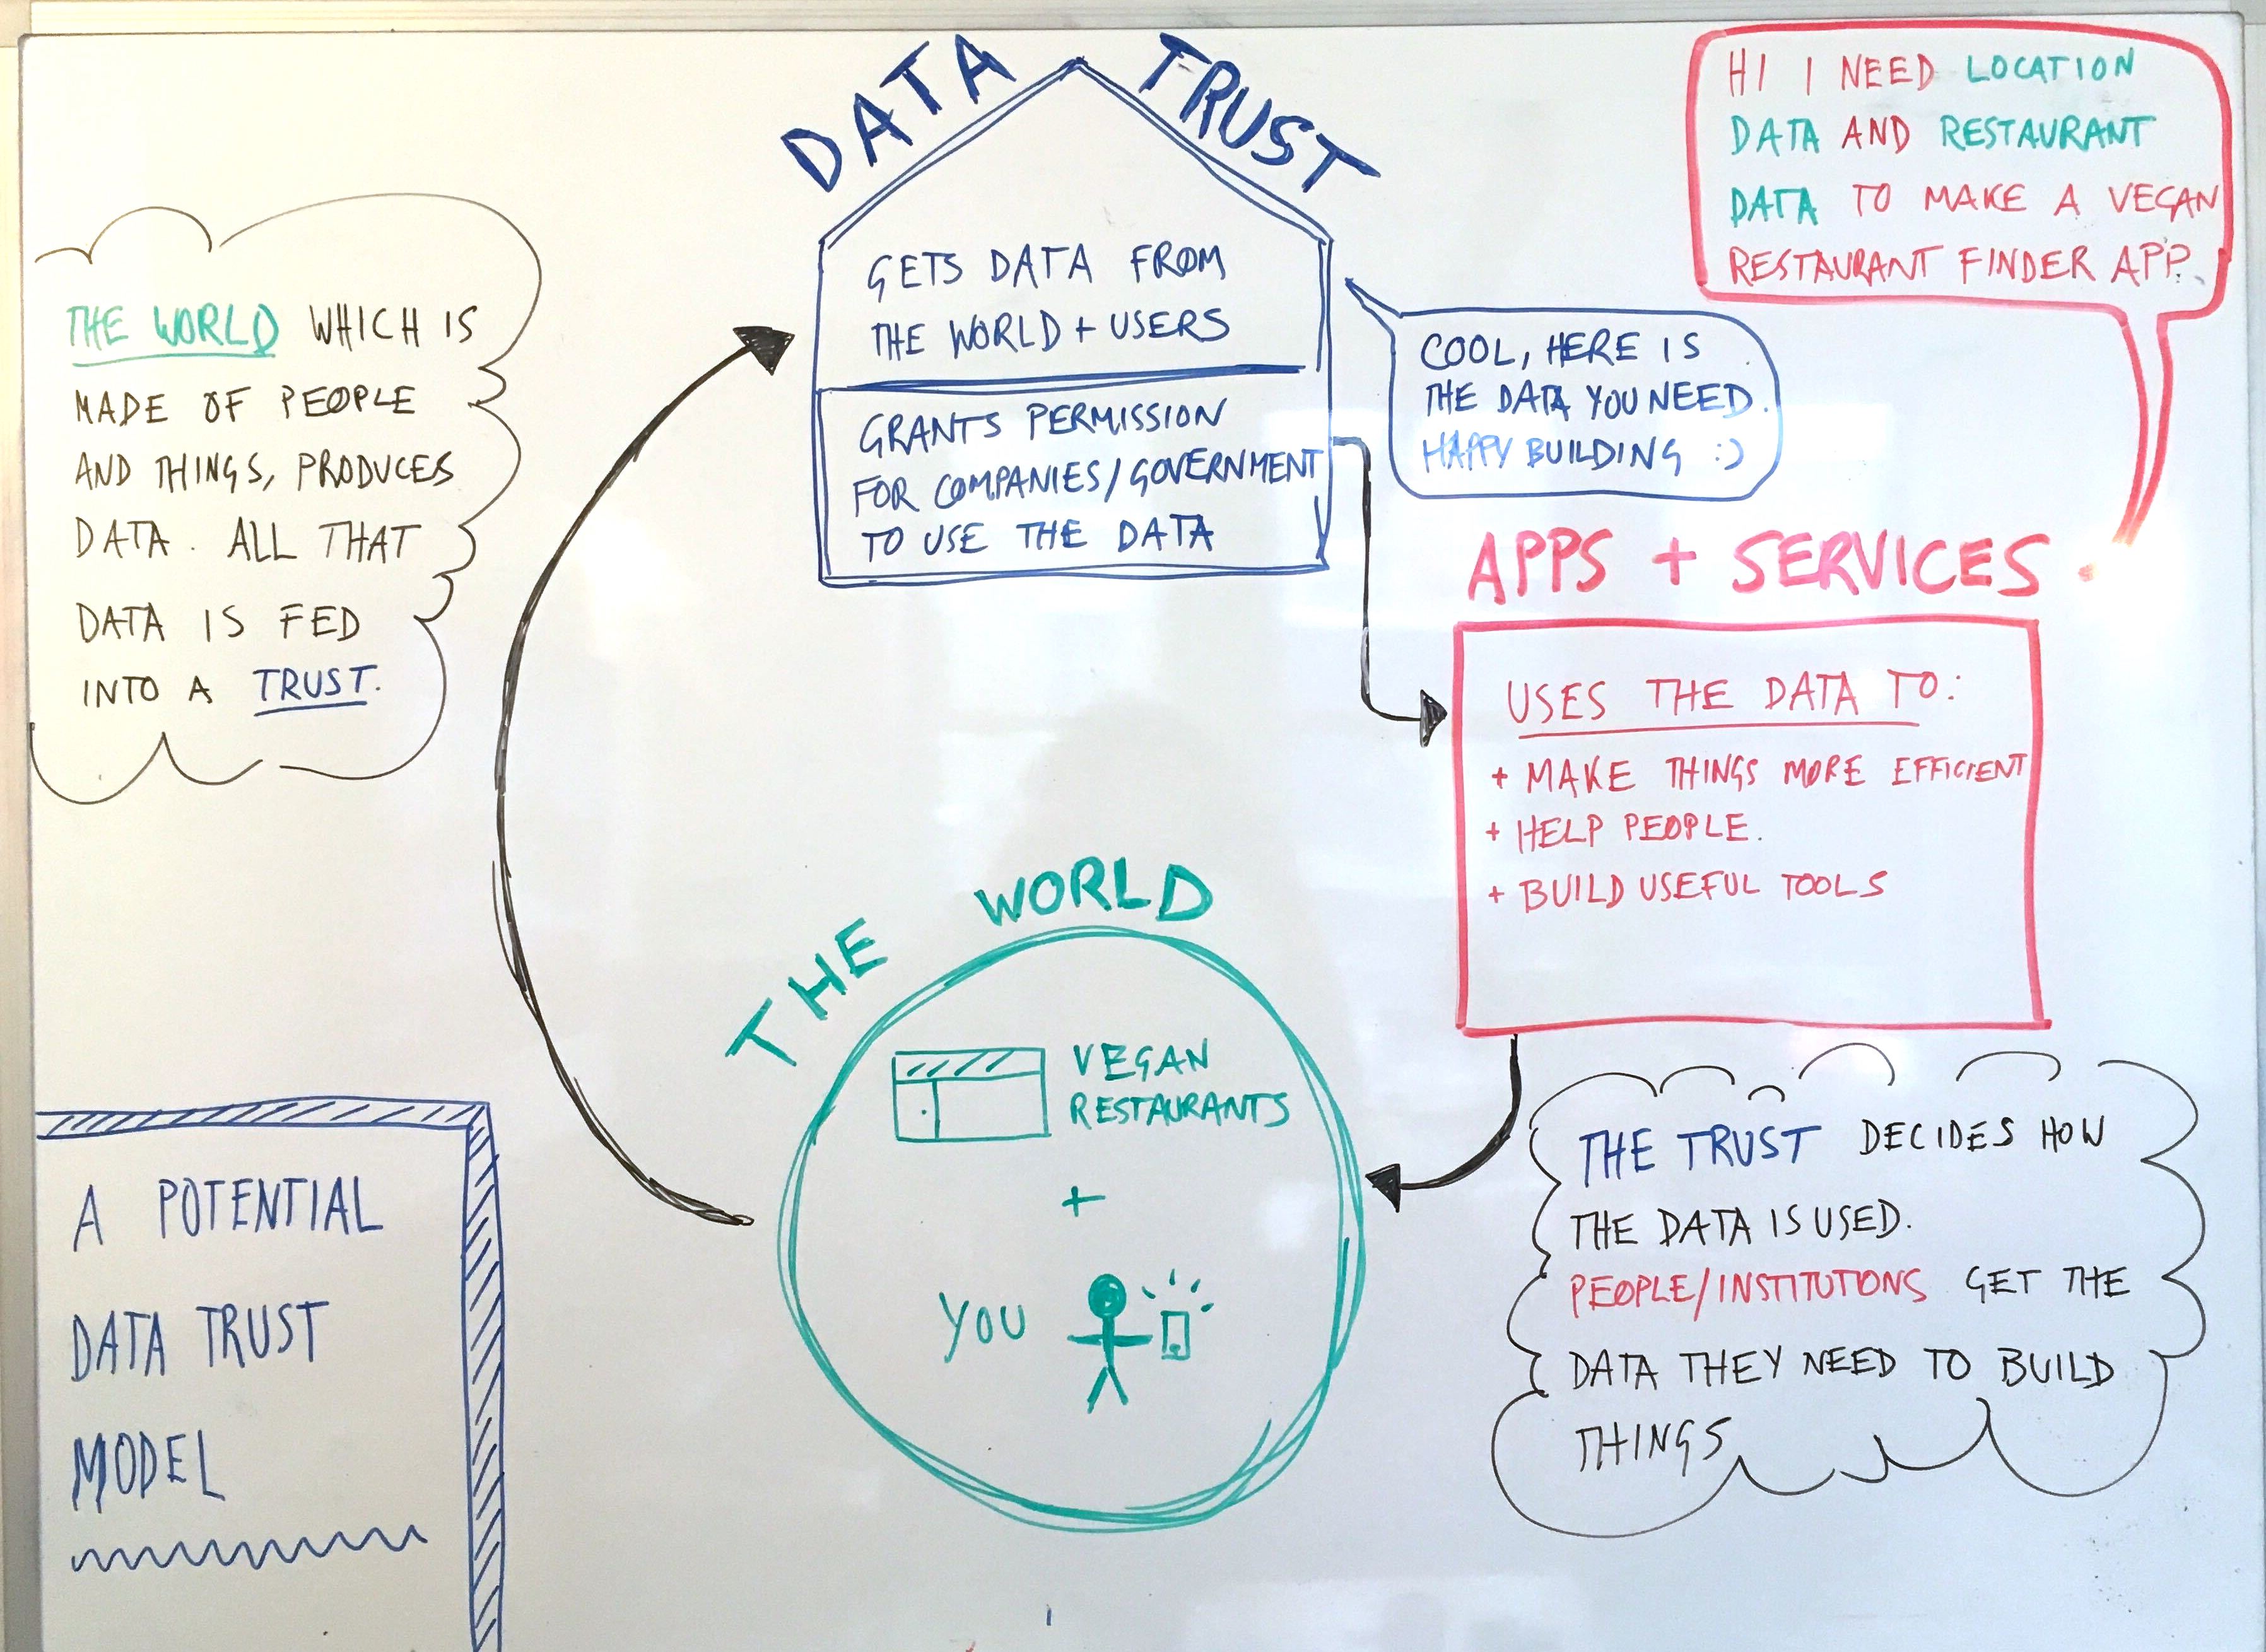 DATA TRUST
GETS DATA FROM
THE WORLD + USERS
GRANTS PERMISSION
FOR COMPANIES/GOVERNMENT
TO USE THE DATA
HI I NEED LOCATION
DATA AND RESTAURANT
DATA TO MAKE A VEGAN
RESTAURANT FINDER APP.
COOL, HERE IS
THE DATA YOU NEED.
HAPPY BUILDING :)
THE WORLD WHICH IS
MADE OF PEOPLE
AND THINGS, PRODUCES
DATA. ALL THAT
DATA IS FED
INTO A TRUST.
APPS + SERVICES
USES THE DATA TO:
+ MAKE THINGS MORE EFFICIENT
+ HELP PEOPLE.
+ BUILD USEFUL TOOLS
THE WORLD
VEGAN
RESTAURANTS
+
YOU
THE TRUST DECIDES HOW
THE DATA IS USED.
PEOPLE/INSTITUTIONS GET THE
DATA THEY NEED TO BUILD
THINGS
A POTENTIAL
DATA TRUST
MODEL